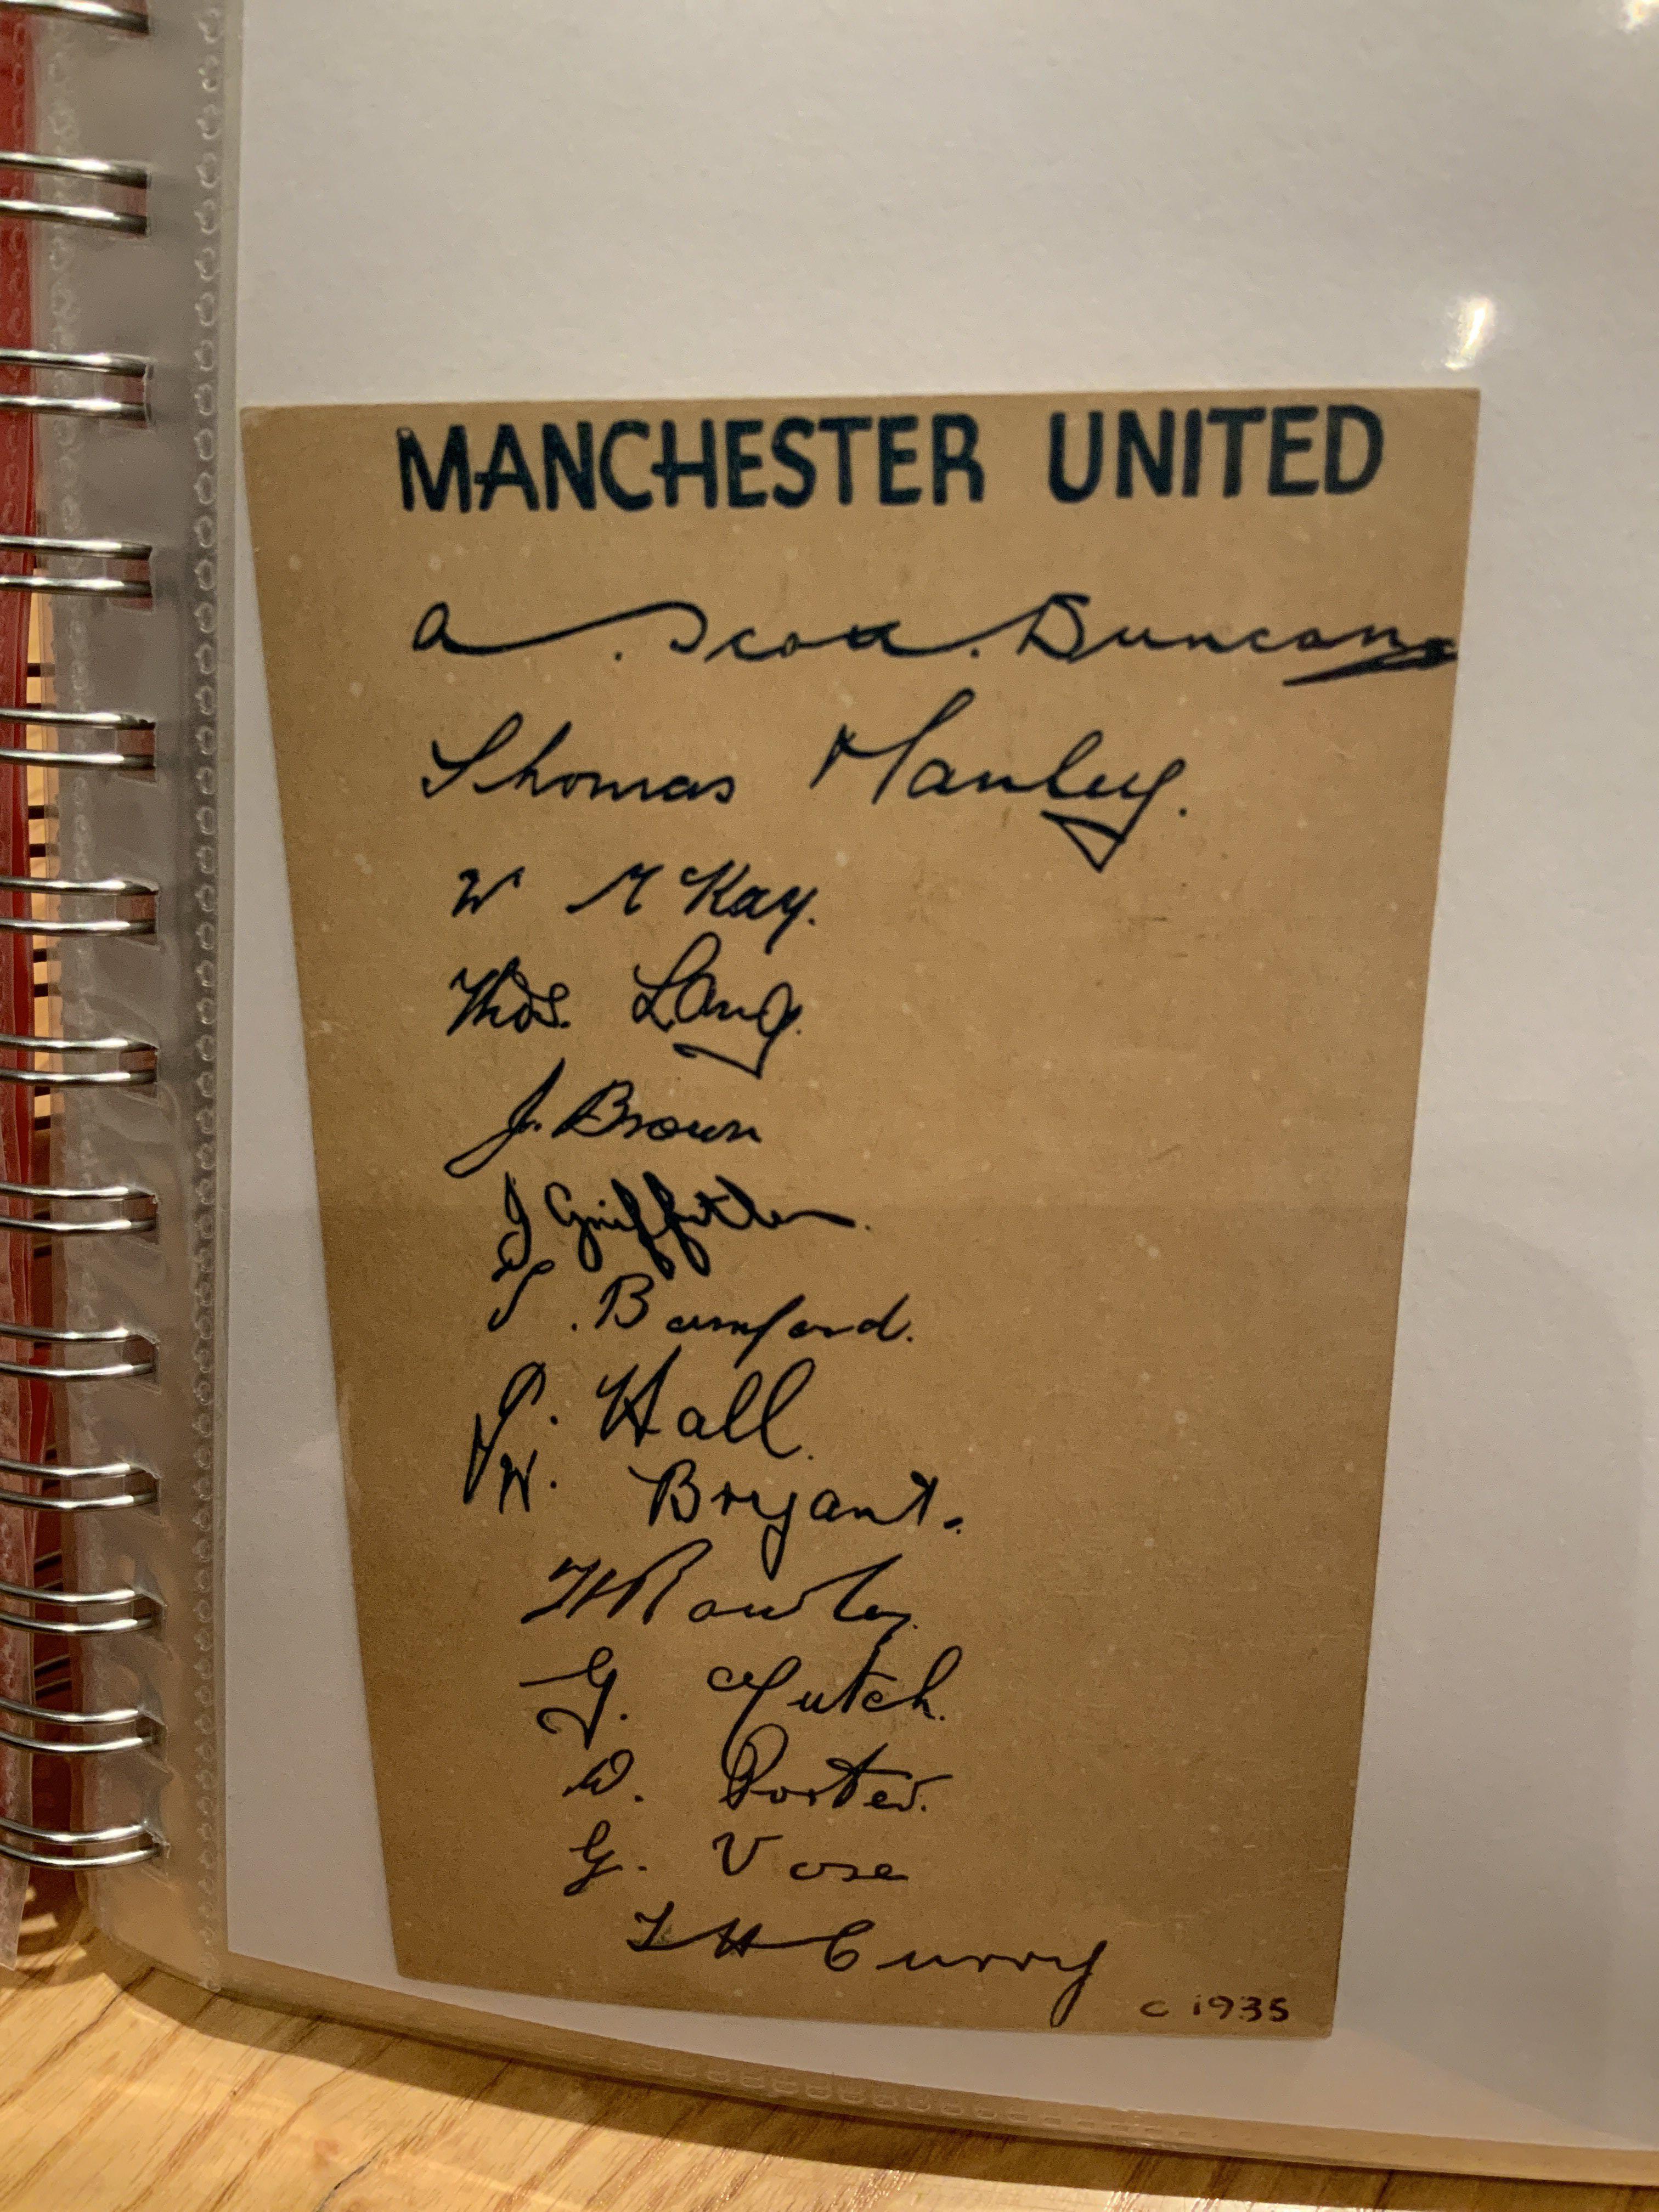 MANCHESTER UNITED
A. Scott. Duncan
Thomas Manley.
W McKay.
Thos. Lang.
J. Brown
J Griffiths.
T. Bamford.
J. Hall.
W. Bryant.
H Rowley.
G. Mutch.
W. Porter.
G. Vose
T H Curry
c 1935